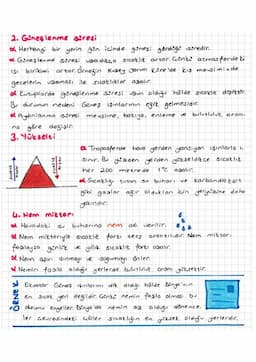 2. Güneşlenme süresi
Herhangi bir yerin gün içinde güneşi gördüğü süredir.
Güneşlenme süresi uzadıkça sıcaklık artar. Çünkü atmosferdeki
ısı birikimi artar. Örneğin Kuzey yarım kürede kış mevsiminde
gecelerin uzaması ile sıcaklıklar azalır.
Kutuplarda güneşlenme süresi uzun olduğu hâlde sıcaklık düşüktür.
Bu durumun nedeni Güneş ışınlarının eğik gelmesidir.
Aydınlanma süresi mevsime, bakıya, enleme ve bulutluluk oranı
na göre değişir.
3. Yükselti
Troposferde hava yerden yansıyan ışınlarla ı
sınır. Bu yüzden yerden yükseldikçe sıcaklık
her 200 metrede 1°C azalır.
Sıcaklığı tutan su buharı ve karbondioksit
gibi gazlar ağır oldukları için yeryüzüne daha
yakındır.
4. Nem miktarı
Havadaki su buharına nem adı verilir.
Nem miktarıyla sıcaklık farkı ters orantılıdır. Nem miktarı
fazlaysa günlük ve yıllık sıcaklık farkı azalır.
Nem aşırı ısınmayı ve soğumayı önler.
Nemin fazla olduğu yerlerde bulutluluk oranı yüksektir.
ÖRNEK
Ekvator Güneş ışınlarını dik aldığı hâlde Dünya'nın
en sıcak yeri değildir. Çünkü nemin fazla olması bu
durumu engeller. Dünya'da nemin az olduğu dönence
ler çevresindeki çöller sıcaklığın en yüksek olduğu yerlerdir.